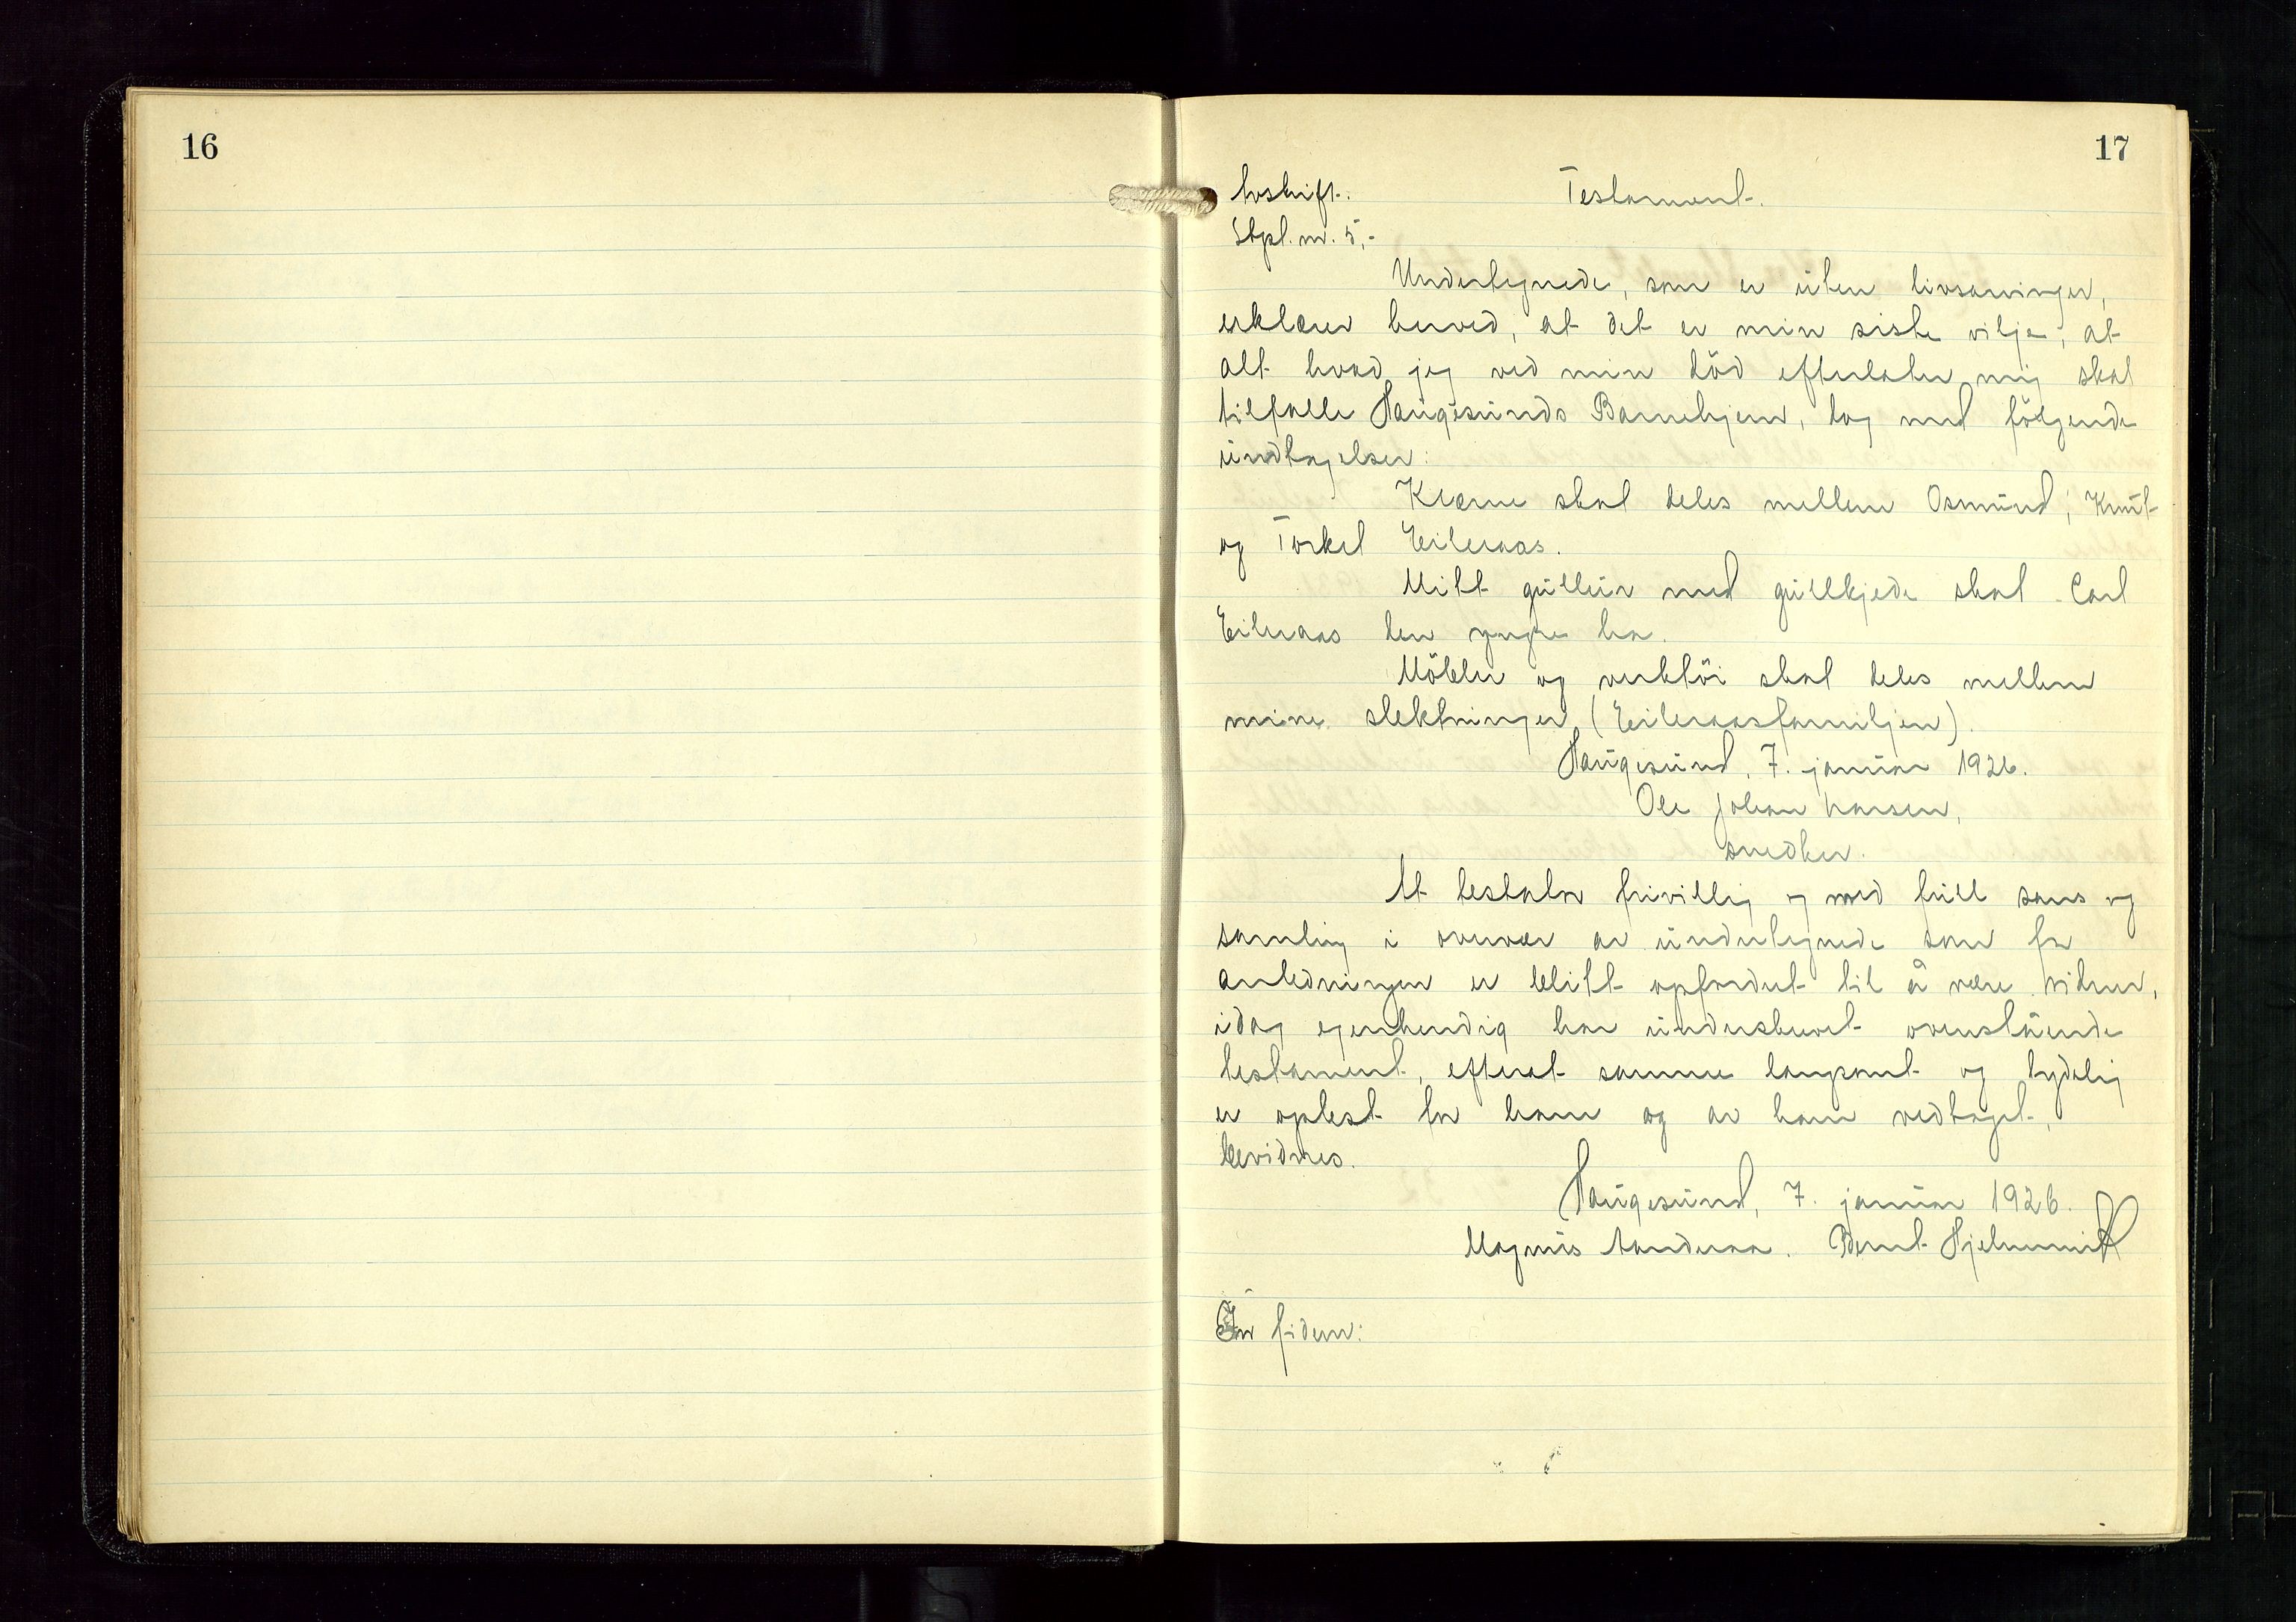 16
17
Avskrift. Testament.
Stpl. m. 5,-
Undertegnede, som er uten livsarvinger,
erklærer herved, at det er min siste vilje, at
alt hvad jeg ved min död efterlater mig skal
tilfalle Haugesunds Barnehjem, dog med fölgende
undtagelser:
Klærne skal deles mellem Osmund, Knut
og Torkel Eileraas.
Mitt gullur med gullkjede skal Carl
Eileraas den yngre ha.
Möbler og verktöi skal deles mellem
mine slektninger (Eileraasfamiljen).
Haugesund, 7. januar 1926.
Ole Johan Hansen,
snedker.
At testator frivillig og med full sans og
samling i overvær av undertegnede som for
anledningen er blitt opfordret til å være vidner,
idag egenhendig har underskrevet ovenstående
testament, efterat samme langsomt og tydelig
er oplest for ham og av ham vedtaget,
bevidnes.
Haugesund, 7. januar 1926.
Magnus Sanderaa. Bernt Hjelmervik
In fidem: